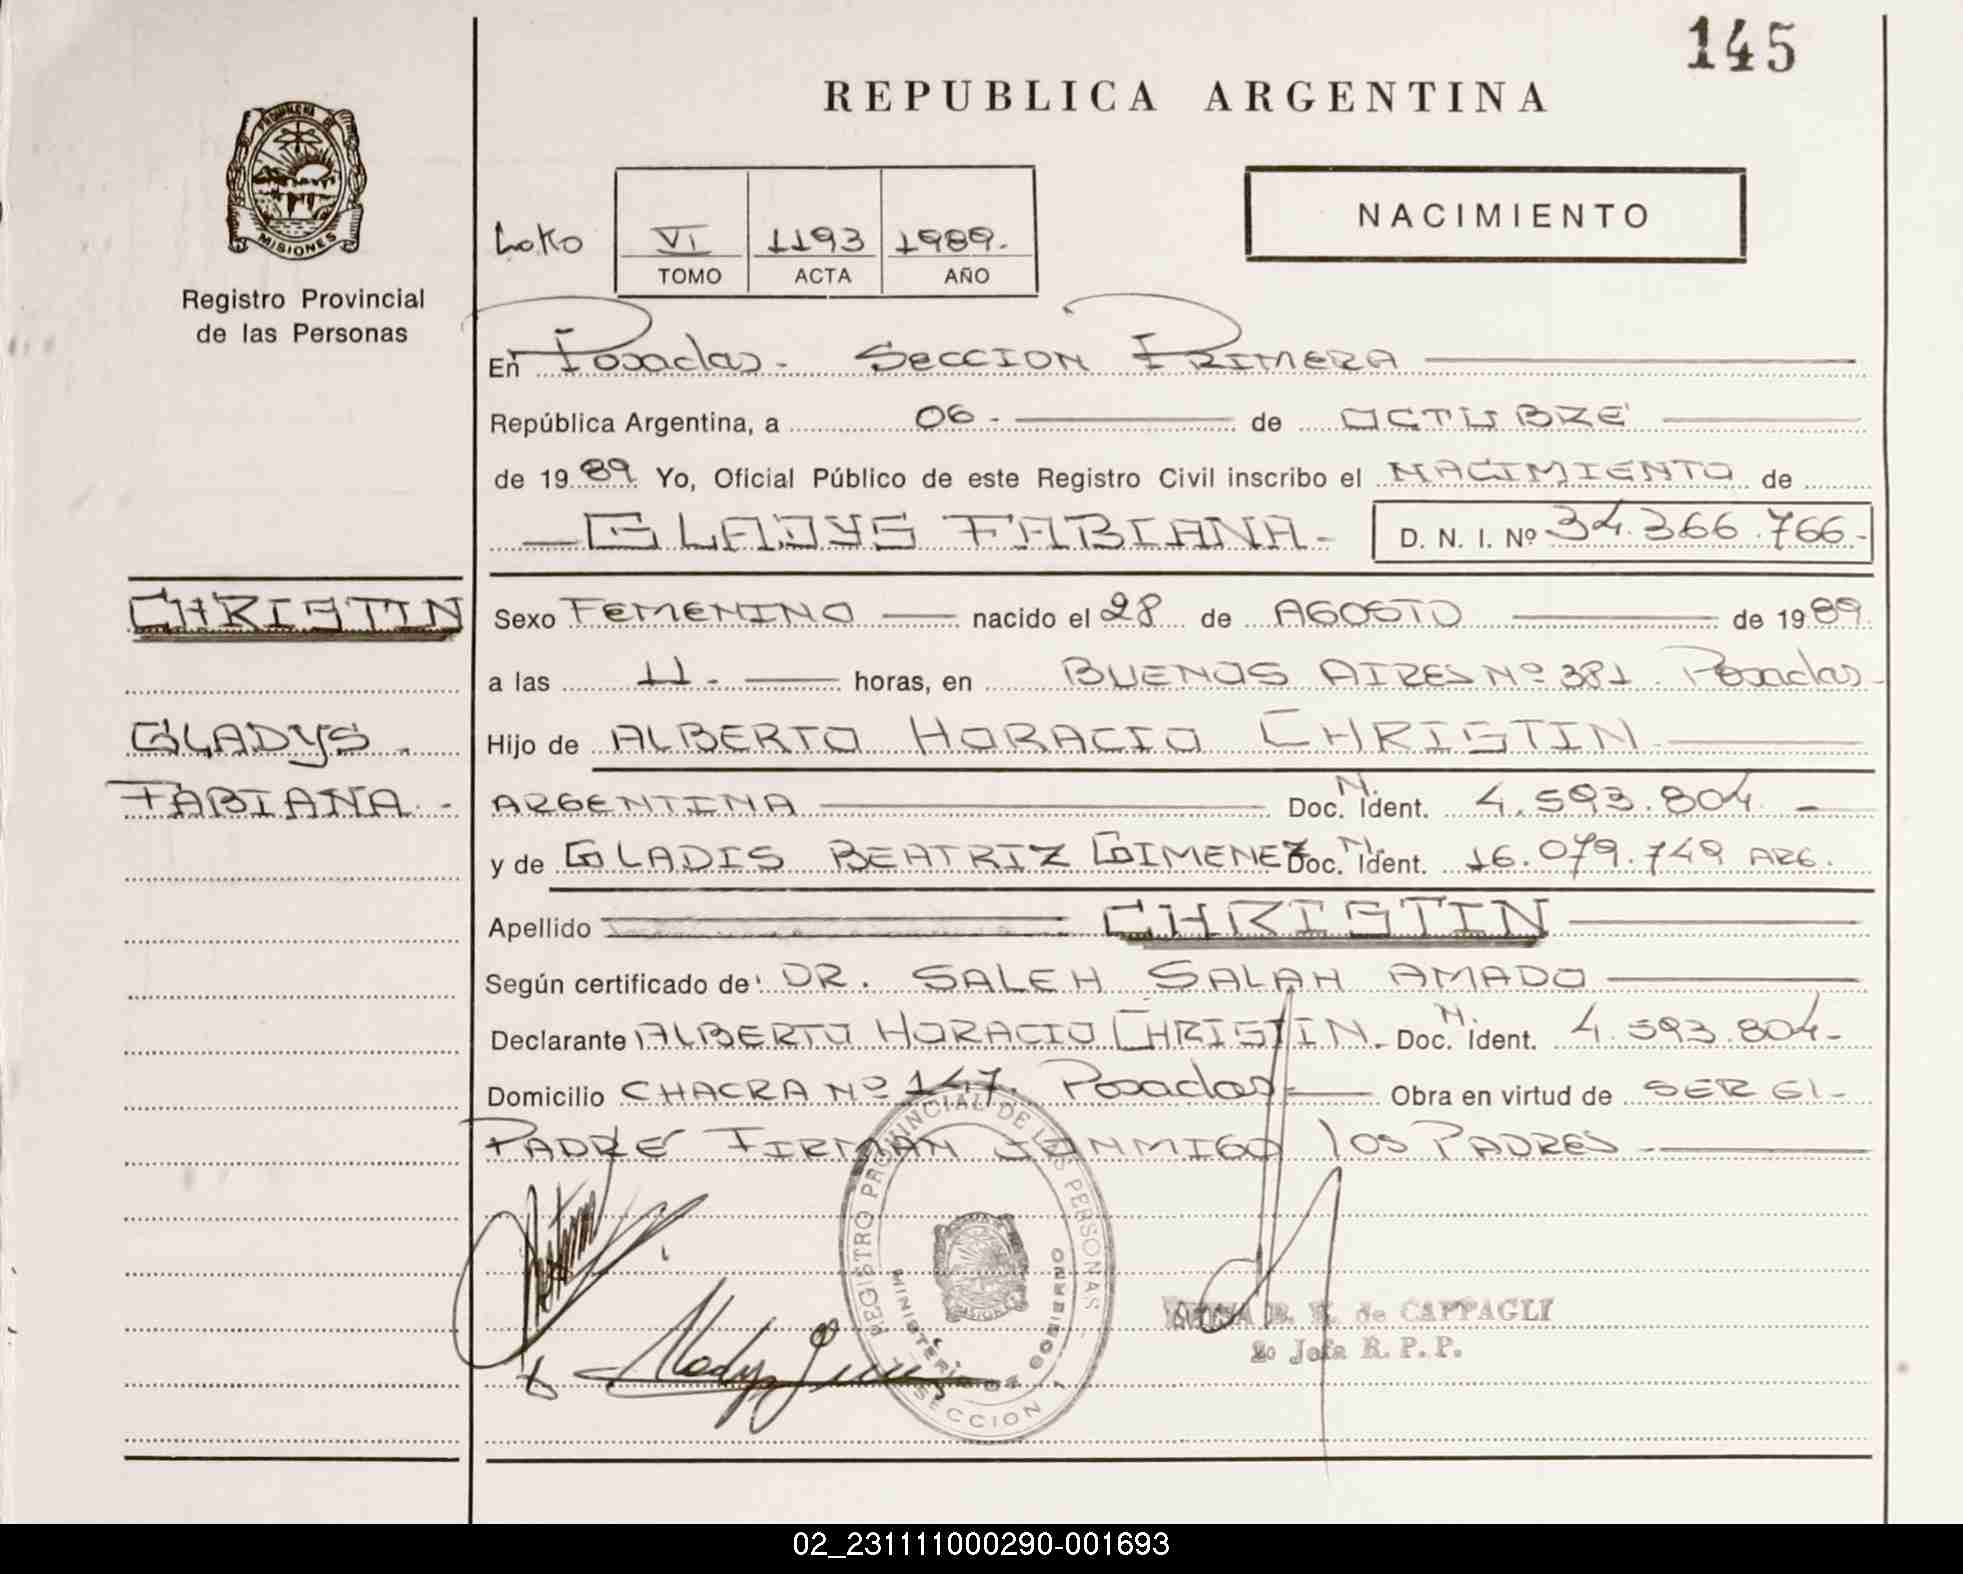 145
REPUBLICA ARGENTINA
PROVINCIA DE
MISIONES
Registro Provincial
de las Personas
NACIMIENTO
VI 1193 1989.
TOMO ACTA AÑO
En Posadas - SECCION PRIMERA
República Argentina, a 06 - de OCTUBRE
de 1989. Yo, Oficial Público de este Registro Civil inscribo el NACIMIENTO de
GLADYS FABIANA - D. N. I. Nº 34.366.766.-
CHRISTIN
Sexo FEMENINO nacido el 28 de AGOSTO de 1989.
a las 11.- horas, en BUENOS AIRES Nº 381 Posadas -
GLADYS.
Hijo de ALBERTO HORACIO CHRISTIN
FABIANA. -
ARGENTINA Doc. N. Ident. 4.593.804 -
y de GLADIS BEATRIZ GIMENEZ Doc. N. Ident. 16.079.749 ARG.
Apellido CHRISTIN
Según certificado de: DR. SALEH SALAH AMADO
Declarante ALBERTO HORACIO CHRISTIN. Doc. N. Ident. 4.593.804-
Domicilio CHACRA Nº 147. Posadas - Obra en virtud de SER EL-
PADRE FIRMAN CONMIGO LOS PADRES
REGISTRO PROVINCIAL DE LAS PERSONAS
MINISTERIO DE GOBIERNO
SECCION 1
B. K. de CAPPAGLI
2º Jefa R. P. P.
02_231111000290-001693